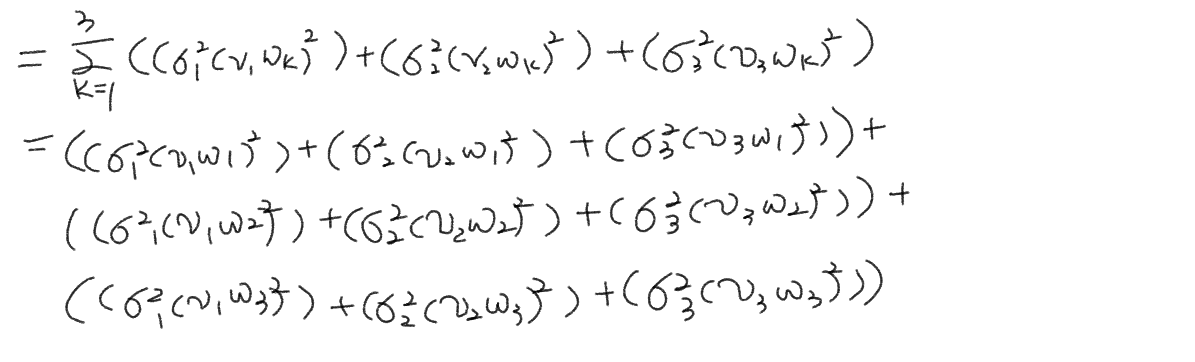 = \sum_{k=1}^{3} ((σ_1^2(v_1w_k)^2)+(σ_2^2(v_2w_k)^2)+(σ_3^2(v_3w_k)^2)
= ((σ_1^2(v_1w_1)^2)+(σ_2^2(v_2w_1)^2)+(σ_3^2(v_3w_1)^2))+
((σ_1^2(v_1w_2)^2)+(σ_2^2(v_2w_2)^2)+(σ_3^2(v_3w_2)^2))+
((σ_1^2(v_1w_3)^2)+(σ_2^2(v_2w_3)^2)+(σ_3^2(v_3w_3)^2))